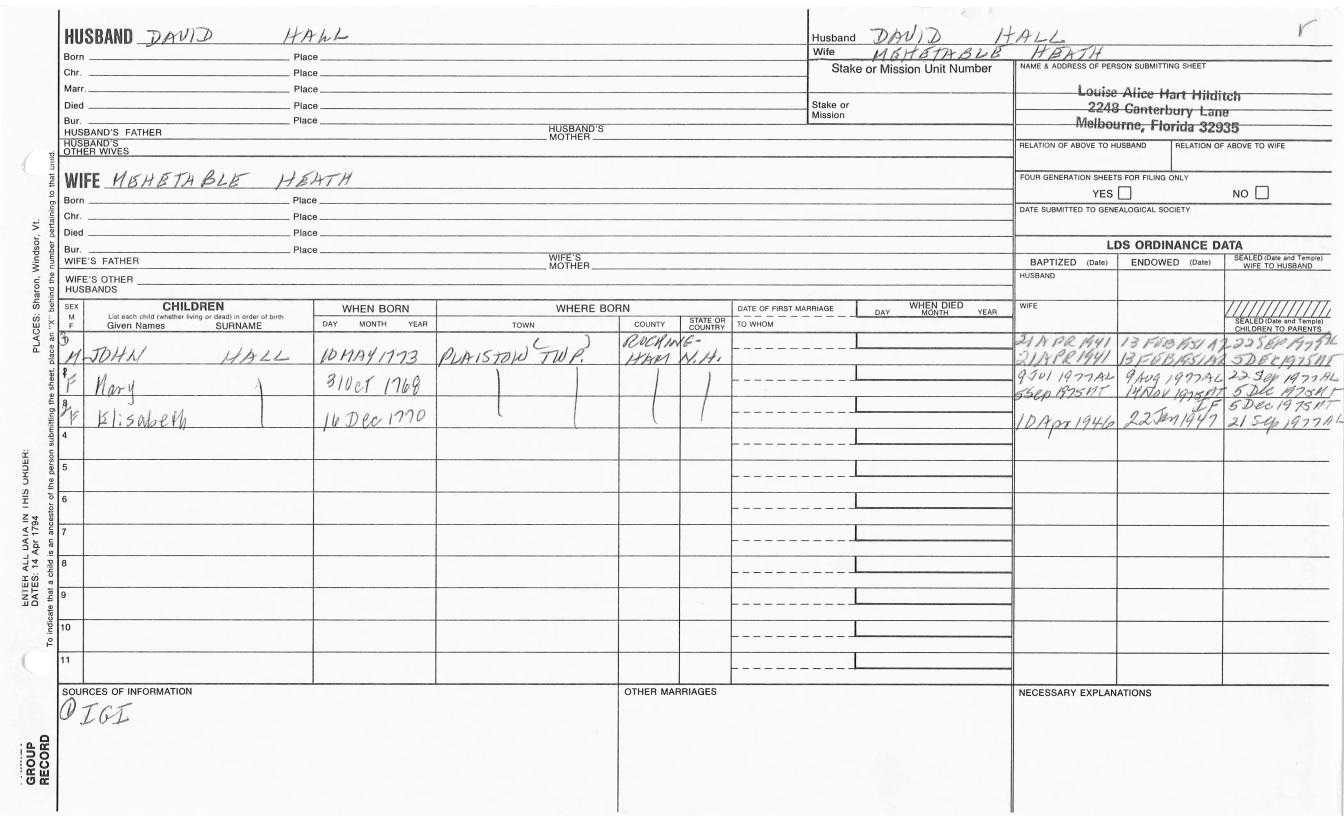 HUSBAND DAVID HALL
Born Place
Chr. Place
Marr. Place
Died Place
Bur. Place
HUSBAND'S FATHER HUSBAND'S MOTHER
HUSBAND'S OTHER WIVES
Husband DAVID HALL
Wife MEHETABLE HEATH
Stake or Mission Unit Number
Stake or Mission
NAME & ADDRESS OF PERSON SUBMITTING SHEET
Louise Alice Hart Hilditch
2248 Canterbury Lane
Melbourne, Florida 32935
RELATION OF ABOVE TO HUSBAND RELATION OF ABOVE TO WIFE
FOUR GENERATION SHEETS FOR FILING ONLY
YES NO
DATE SUBMITTED TO GENEALOGICAL SOCIETY
WIFE MEHETABLE HEATH
Born Place
Chr. Place
Died Place
Bur. Place
WIFE'S FATHER WIFE'S MOTHER
WIFE'S OTHER HUSBANDS
LDS ORDINANCE DATA
BAPTIZED (Date) ENDOWED (Date) SEALED (Date and Temple) WIFE TO HUSBAND
HUSBAND
WIFE
SEALED (Date and Temple) CHILDREN TO PARENTS
SEX M F
CHILDREN
List each child (whether living or dead) in order of birth
Given Names SURNAME
WHEN BORN
DAY MONTH YEAR
WHERE BORN
TOWN COUNTY STATE OR COUNTRY
DATE OF FIRST MARRIAGE
TO WHOM
WHEN DIED
DAY MONTH YEAR
M JOHN HALL 10 MAY 1773 PLAISTOW TWP. ROCKING-HAM N.H.
21 APR 1941 13 FEB 1951 AZ 22 SEP 1975
21 APR 1941 13 FEB 1951 AZ 5 DEC 1975 MT
2 F Mary 31 Oct 1768
9 Jul 1977 AL 9 Aug 1977 AL 22 Sep 1977 AL
5 Sep 1975 MT 14 Nov 1975 MT 5 Dec 1975 MT
3 F Elisabeth 16 Dec 1770
IF 5 Dec 1975 MT
10 Apr 1946 22 Jan 1947 21 Sep 1977 AL
4
5
6
7
8
9
10
11
SOURCES OF INFORMATION
① IGI
OTHER MARRIAGES
NECESSARY EXPLANATIONS
ENTER ALL DATA IN THIS ORDER:
DATES: 14 Apr 1794 PLACES: Sharon, Windsor, Vt.
To indicate that a child is an ancestor of the person submitting the sheet, place an "X" behind the number pertaining to that child.
GROUP RECORD